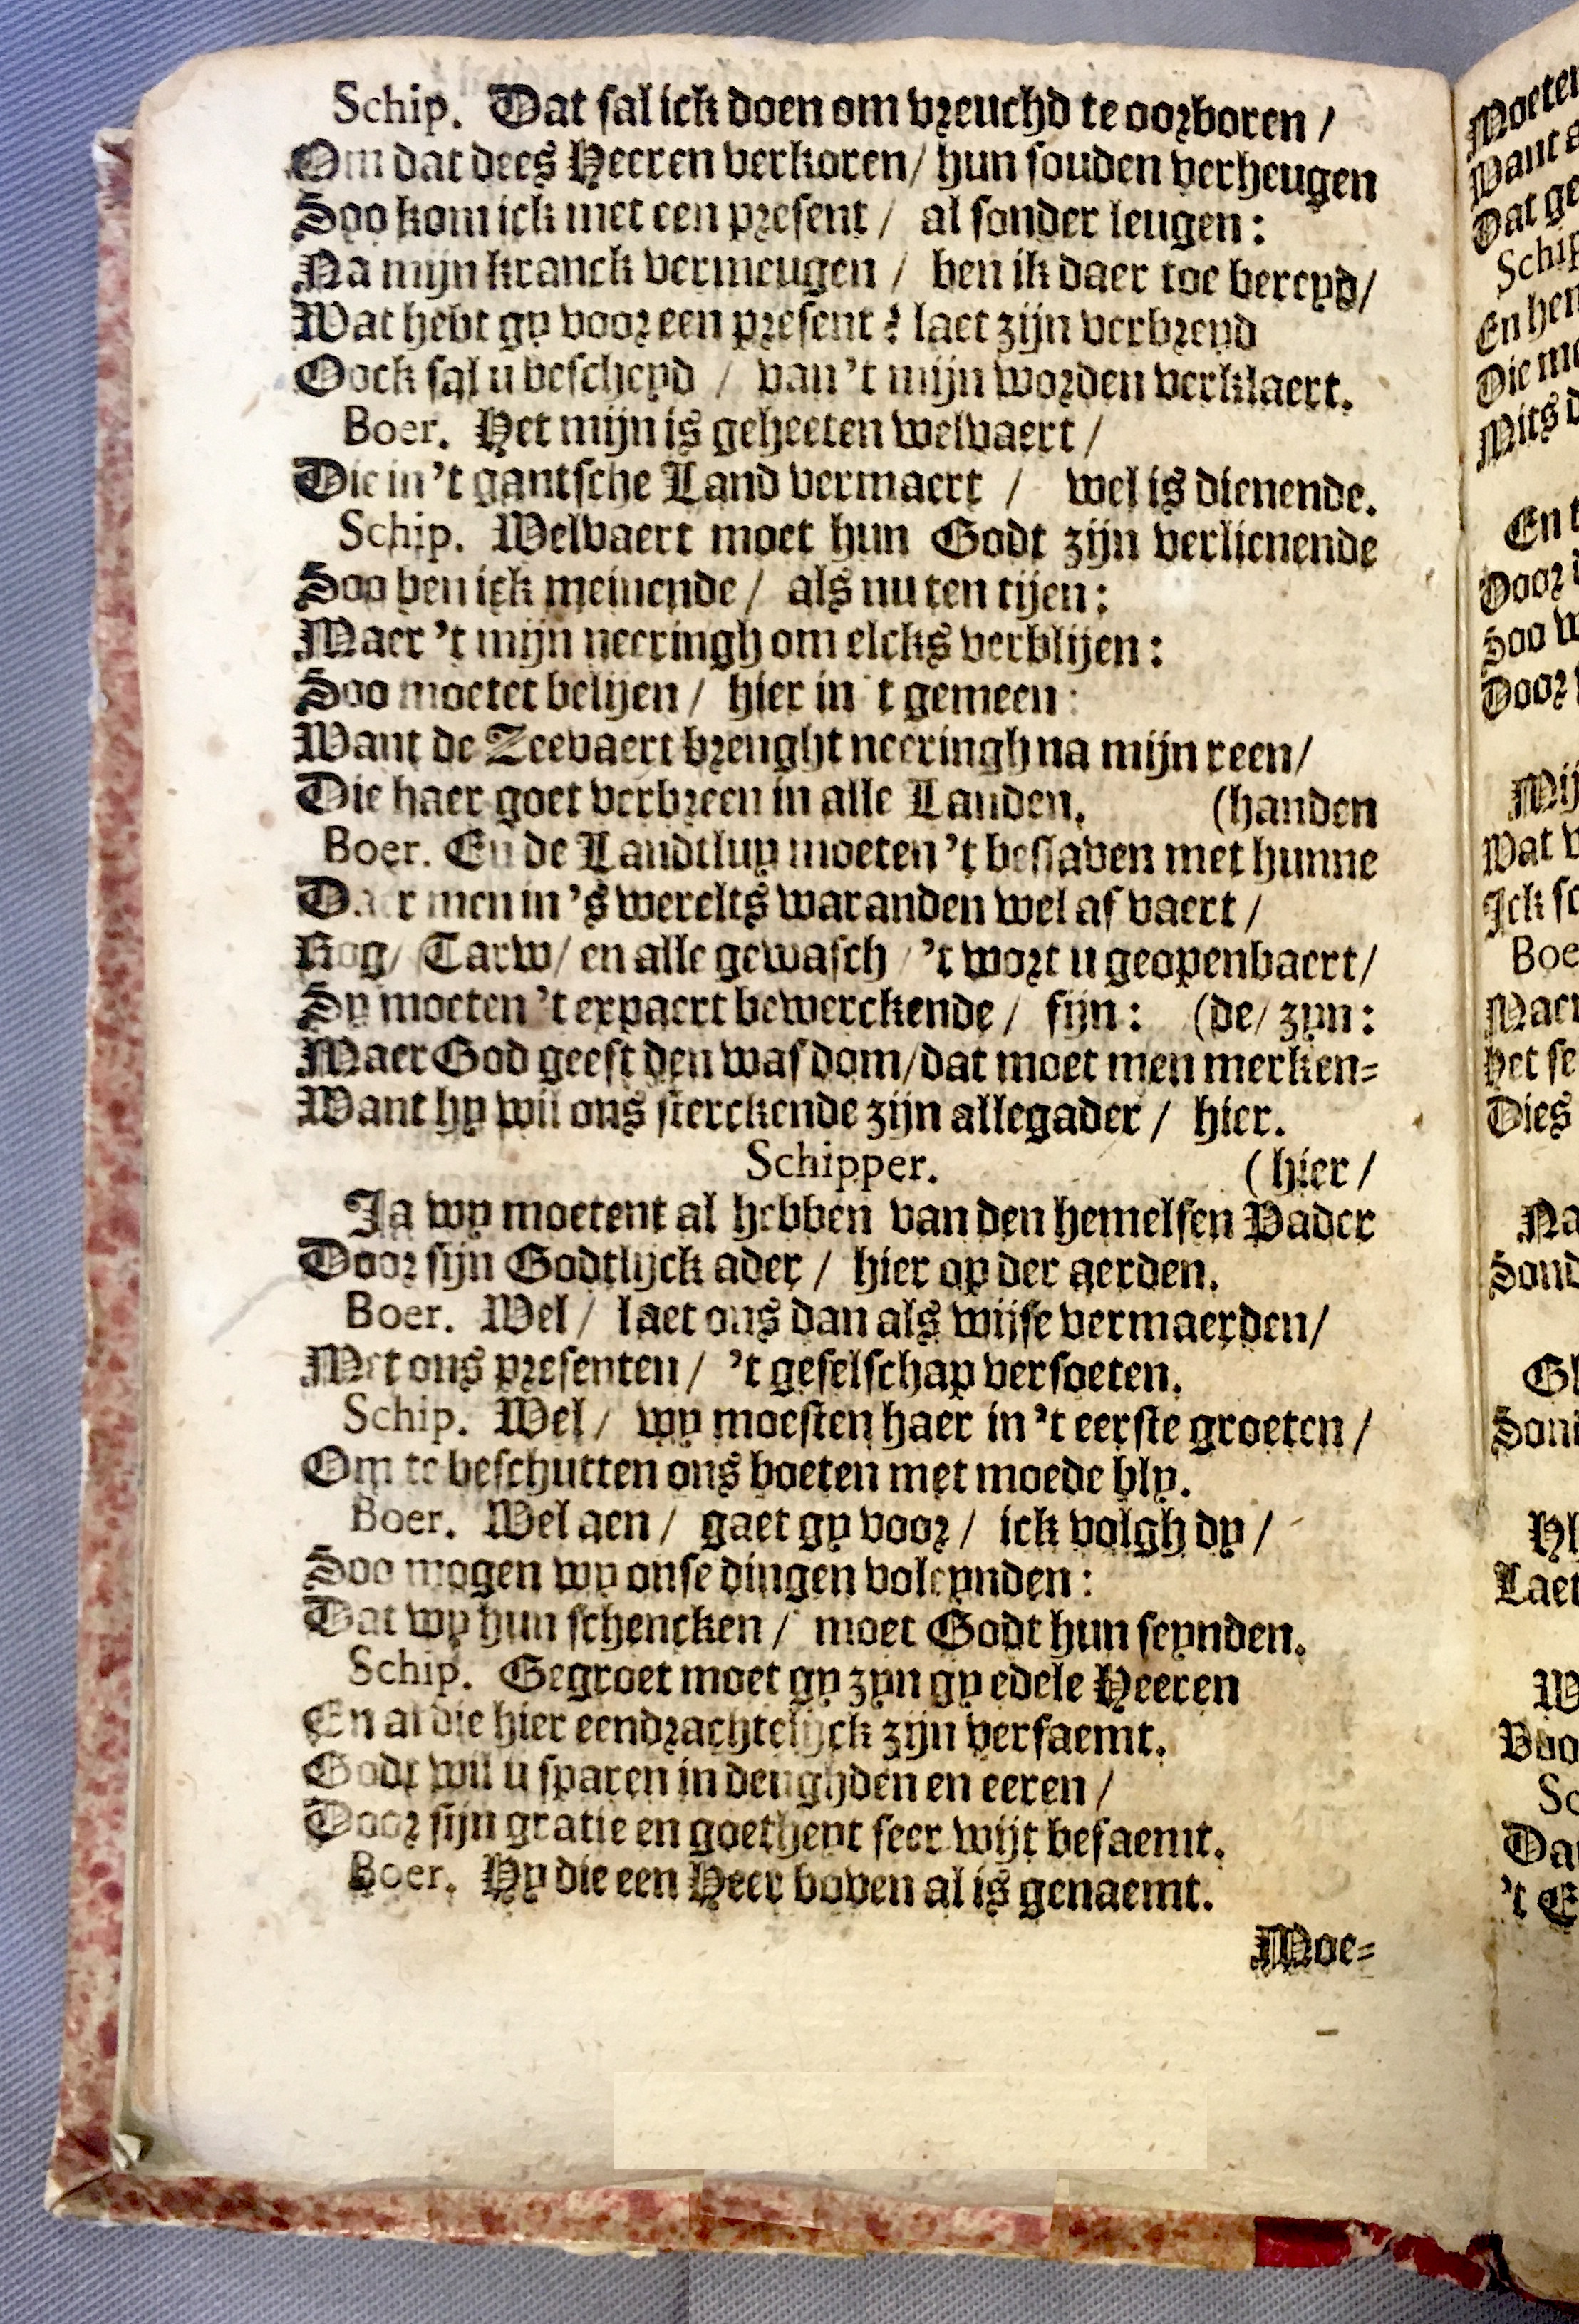 Schip. Dat sal ick doen om vreuchd te oorboren /
Om dat dees Heeren verkoren / hun souden verheugen
Soo kom ick met een present / al sonder leugen:
Na mijn kranck vermeugen / ben ik daer toe bereyd /
Wat hebt gy voor een present? laet zijn verbreyd
Oock sal u bescheyd / van 't mijn worden verklaert.
Boer. Het mijn is geheeten welvaert /
Die in 't gantsche Land vermaert / wel is dienende.
Schip. Welvaert moet hun Godt zijn verlienende
Soo ben ick meinende / als nu ten tijen:
Maer 't mijn neeringh om elcks verblijen:
Soo moetet belijen / hier in 't gemeen:
Want de Zeevaert brenght neeringh na mijn reen /
Die haer goet verbreen in alle Landen. (handen
Boer. En de Landtluy moeten 't beslaven met hunne
Daer men in 's werelts waranden wel af vaert /
Rog / Tarw / en alle gewasch / 't wort u geopenbaert /
Sy moeten 't expaert bewerckende / fijn: (de / zyn:
Maer God geeft den wasdom / dat moet men merken-
Want hy wil ons sterckende zijn allegader / hier.
Schipper. (hier /
Ja wy moetent al hebben van den hemelsen Vader
Door sijn Godtlijck ader / hier op der aerden.
Boer. Wel / laet ons dan als wijse vermaerden /
Met ons presenten / 't geselschap versoeten.
Schip. Wel / wy moesten haer in 't eerste groeten /
Om te beschutten ons boeten met moede bly.
Boer. Wel aen / gaet gy voor / ick volgh dy /
Soo mogen wy onse dingen voleynden:
Dat wy hun schencken / moet Godt hun seynden.
Schip. Gegroet moet gy zyn gy edele Heeren
En al die hier eendrachtelijck zijn versaemt.
Godt wil u sparen in deughden en eeren /
Door sijn gratie en goetheyt seer wijt befaemt.
Boer. Hy die een Heer boven al is genaemt.
Moe-
Moeten
Want
Dat ge
Schip
En hen
Die
Mits
En
Door
Soo
Door
Mij
Wat
Ick
Boe
Maer
Het se
Dies
Na
Sond
Gl
Laet
Da
't